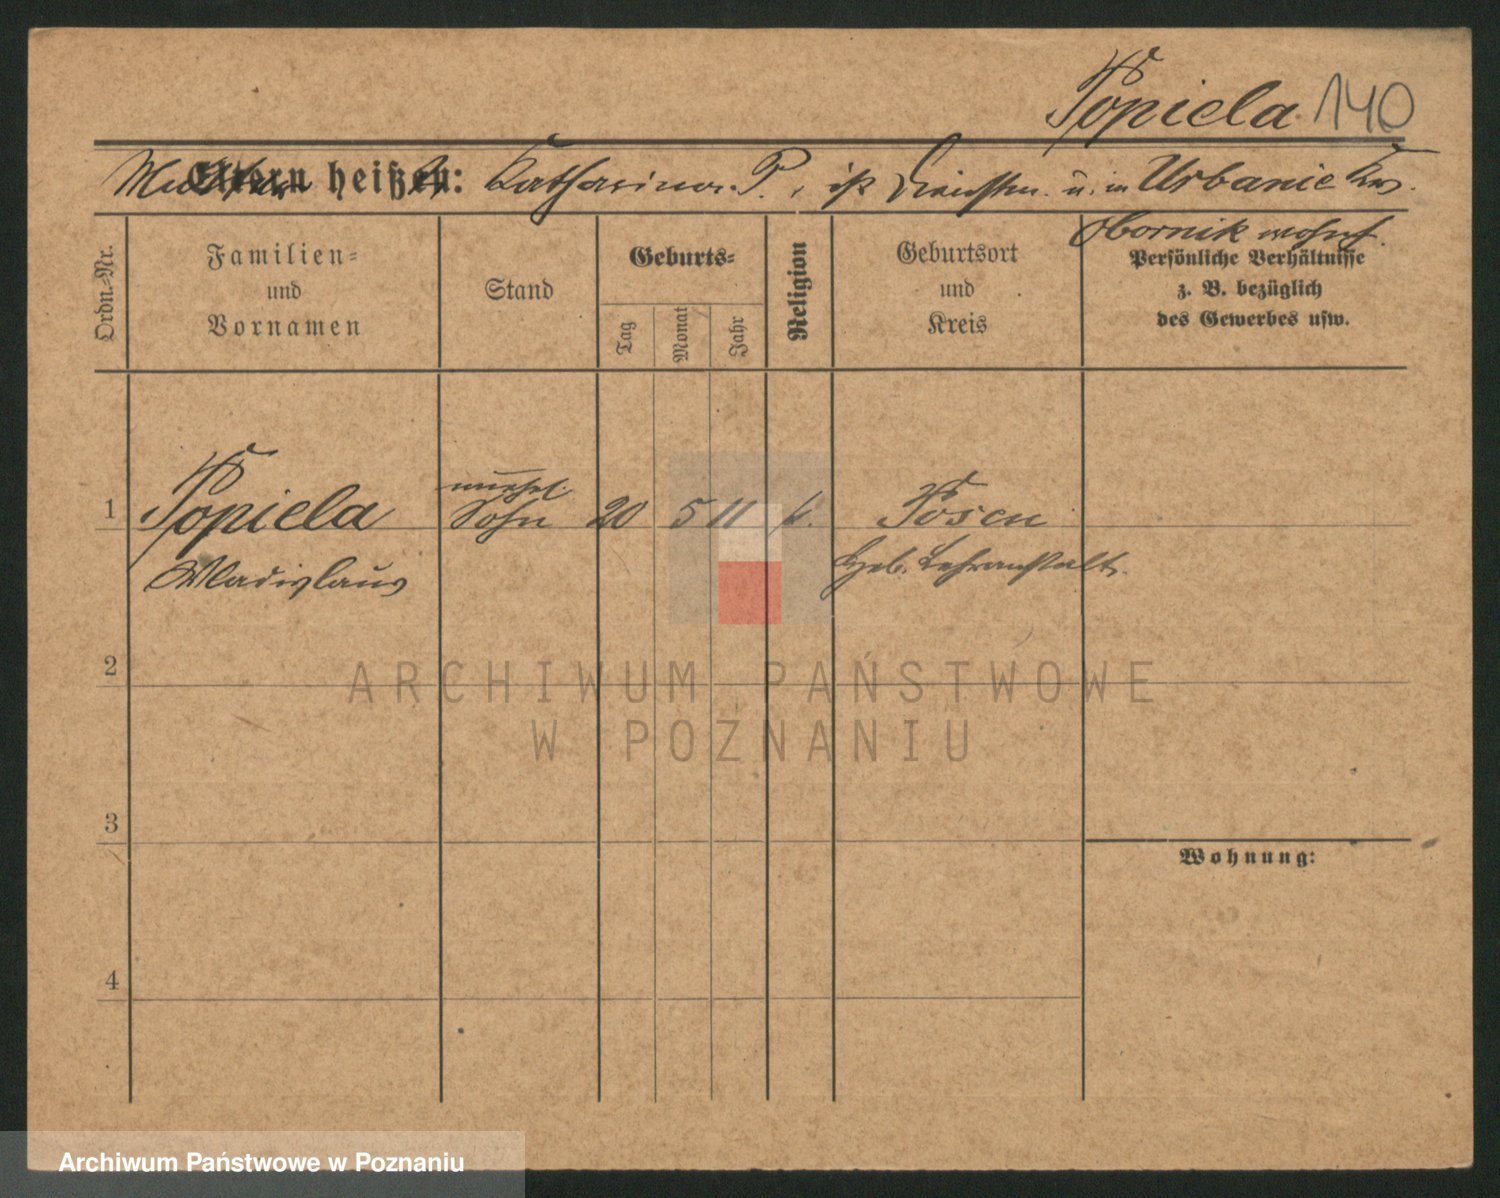 Popiela 140
Mutter heißt: Katharina P., ist Dienstm. u. in Urbanie Krs.
Obornik wohnh.
Ordn.-Nr.
Familien-
und
Vornamen
Stand
Geburts-
Tag
Monat
Jahr
Religion
Geburtsort
und
Kreis
Persönliche Verhältnisse
z. B. bezüglich
des Gewerbes usw.
1 Popiela unehel. Sohn 20 5 11 k. Posen
Wladislaus Heb. Lehranstalt.
2
ARCHIWUM PAŃSTWOWE
W POZNANIU
3
Wohnung:
4
Archiwum Państwowe w Poznaniu